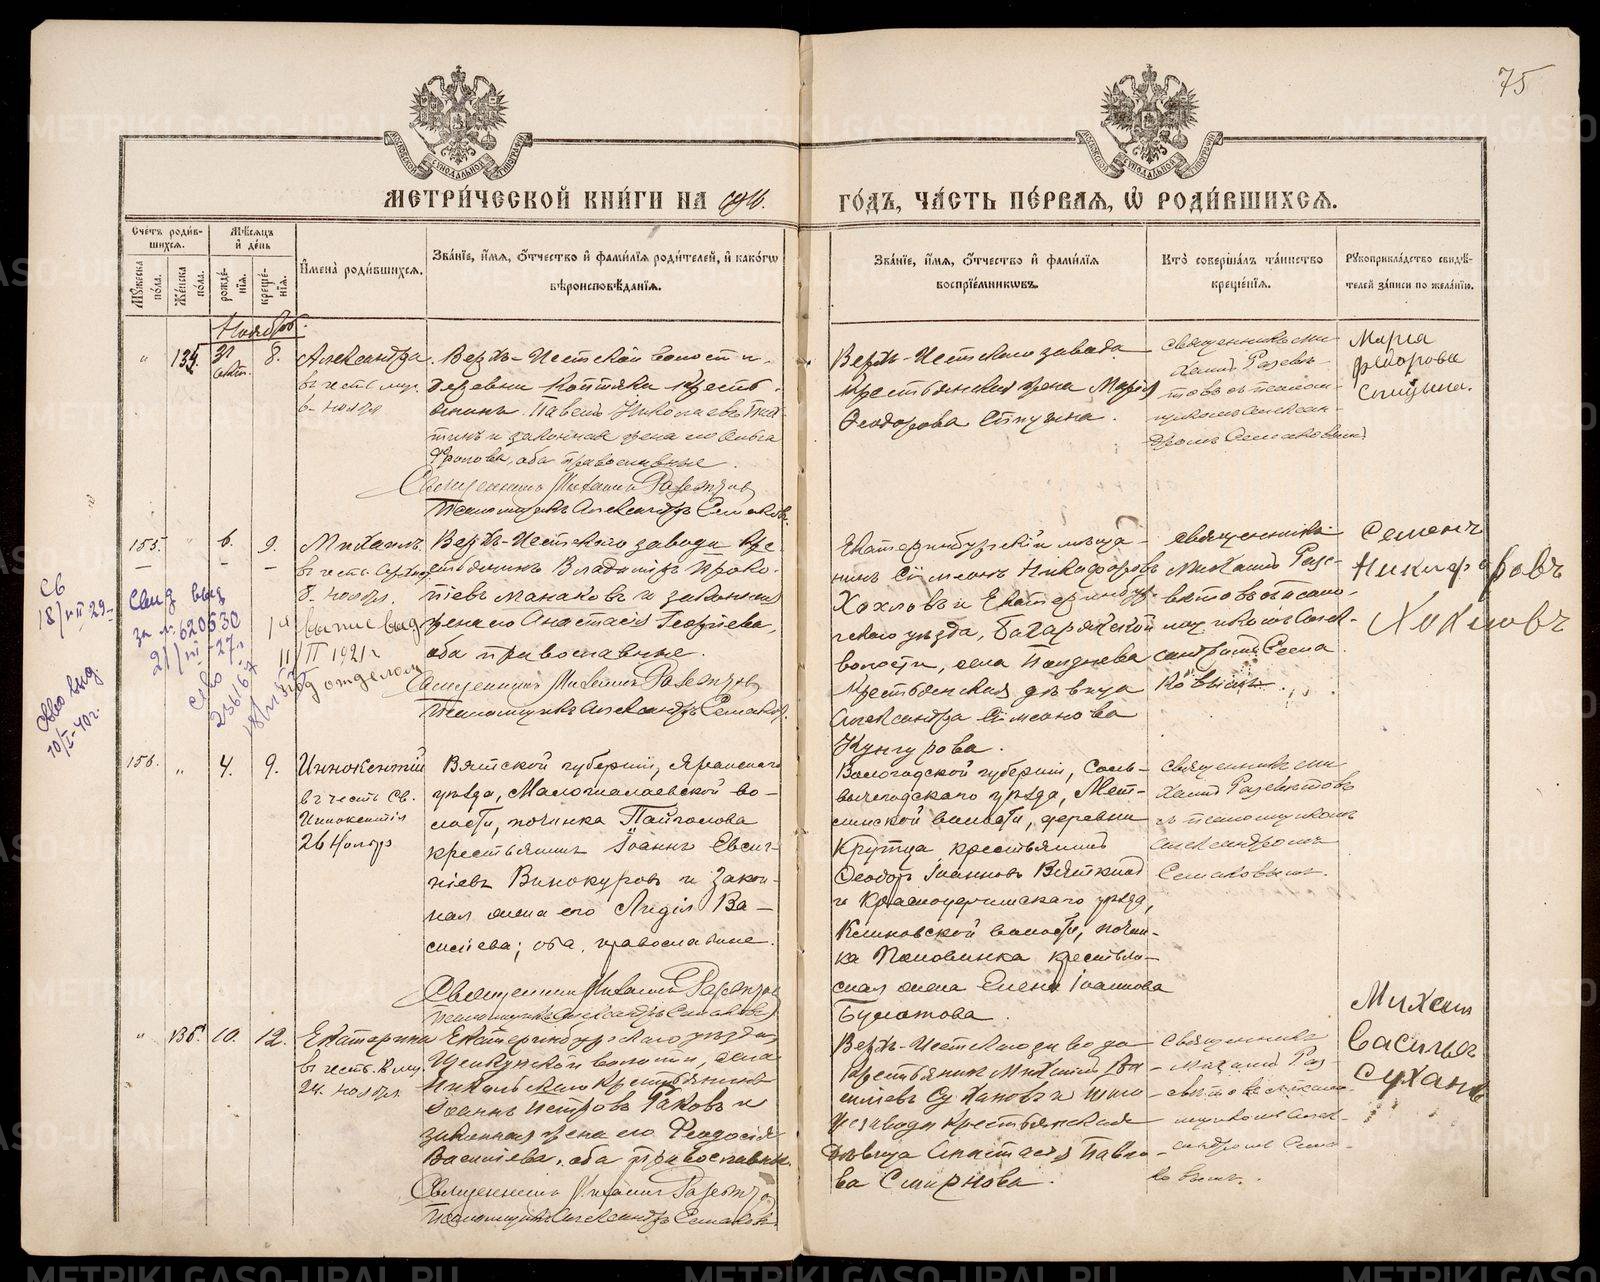 75
МЕТРИ́ЧЕСКОЙ КНИ́ГИ НА 1916.
ГО́ДЪ, ЧА́СТЬ ПЕ́РВАЯ, Ѡ РОДИ́ВШИХСЯ.
Сче́тъ роди́в-
шихся.
Мѣ́сяцъ
и҆ де́нь
Му́жеска по́ла.
Же́нска по́ла.
рожде́-
нїя.
креще́-
нїя.
И҆мена̀ роди́вшихся.
Зва́нїе, и҆́мя, ѻ҆́тчество и҆ фами́лїя роди́телей, и҆ како́гѡ
вѣроисповѣ́данїя.
Зва́нїе, и҆́мя, ѻ҆́тчество и҆ фами́лїя
воспрїе́мникѡвъ.
Кто̀ соверша́лъ та́инство
креще́нїя.
Рꙋкоприкла́дство свидѣ́-
телей за́писи по жела́нїю.
Ноябрь.
" 135. 31 окт. 8.
Александра
въ честь муч.
6 ноября
Верхъ-Исетской волости,
деревни Коптяки кресть-
янинъ Павелъ Николаевъ
и законная жена его Ольга
Фролова, оба православные.
Священникъ Михаилъ Разсвѣтовъ
Псаломщикъ Александръ Семаковъ.
Верхъ-Исетскаго завода
крестьянская жена Марія
Ѳеодорова Спицына.
священникъ Ми-
хаилъ Разсвѣ-
товъ съ псалом-
щикомъ Алексан-
дромъ Семаковымъ
Марія
Федорова
Спицына.
155. " 6. 9.
Михаилъ
въ честь Арх.
8. ноября.
Верхъ-Исетскаго завода кре-
стьянинъ Владиміръ Проко-
піевъ Манаковъ и законная
жена его Анастасія Георгіева,
оба православные.
Священникъ Михаилъ Разсвѣтовъ
Псаломщикъ Александръ Семаковъ.
Екатеринбургскій мѣща-
нинъ Сѵмеонъ Никифоровъ
Хохловъ и Екатеринбур-
гскаго уѣзда, Багарякской
волости, села Позднева
крестьянская дѣвица
Александра Сѵмеонова
Кунгурова.
священникъ
Михаилъ Разс-
вѣтовъ съ псало-
мщикомъ Алек-
сандромъ Сема
ковымъ.
Семенъ
Никифоровъ
Хохловъ
СВ
18/VII 29.
Свид выд
за № 620530
21/VII-27г
свво
236167
18/VI
Свво выд
10/I-40г.
1й выпис выд
11/II 1921г
под отделом
156. " 4. 9.
Иннокентій
въ честь Св.
Иннокентія
26 Ноября
Вятской губерніи, Яранскаго
уѣзда, Малошалаевской во-
лости, починка Пайголова
крестьянинъ Іоаннъ Евсиг-
ніевъ Винокуровъ и закон-
ная жена его Лидія Ва-
сильева; оба православные.
Священникъ Михаилъ Разсвѣтовъ
Псаломщикъ Александръ Семаковъ
Вологодской губерніи, Соль-
вычегодскаго уѣзда, Мет-
линской волости, деревни
Крутца крестьянинъ
Ѳеодоръ Іоанновъ Вяткинъ
и Красноуфимскаго уѣзда,
Кленовской волости, почин-
ка Половинка крестьян-
ская жена Елена Іоаннова
Булатова.
священникъ Ми-
хаилъ Разсвѣтовъ
съ псаломщикомъ
Александромъ
Семаковымъ.
" 136. 10. 12.
Екатерина
въ честь В. муч.
24. ноября
Екатеринбургскаго уѣзда
волости, села
Никольскаго крестьянинъ
Іоаннъ Петровъ Раковъ и
законная жена его Ѳеодосія
Васильева, оба православные.
Священникъ Михаилъ Разсвѣтовъ
Псаломщикъ Александръ Семаковъ.
Верхъ-Исетскаго завода
крестьянинъ Михаилъ Ва-
сильевъ Сухановъ и того
же завода крестьянская
дѣвица Анастасія Павло-
ва Смирнова.
священникъ
Михаилъ Раз-
свѣтовъ съ псало-
мщикомъ Алек-
сандромъ Сема-
ковымъ.
Михаил
Васильев
Суханов